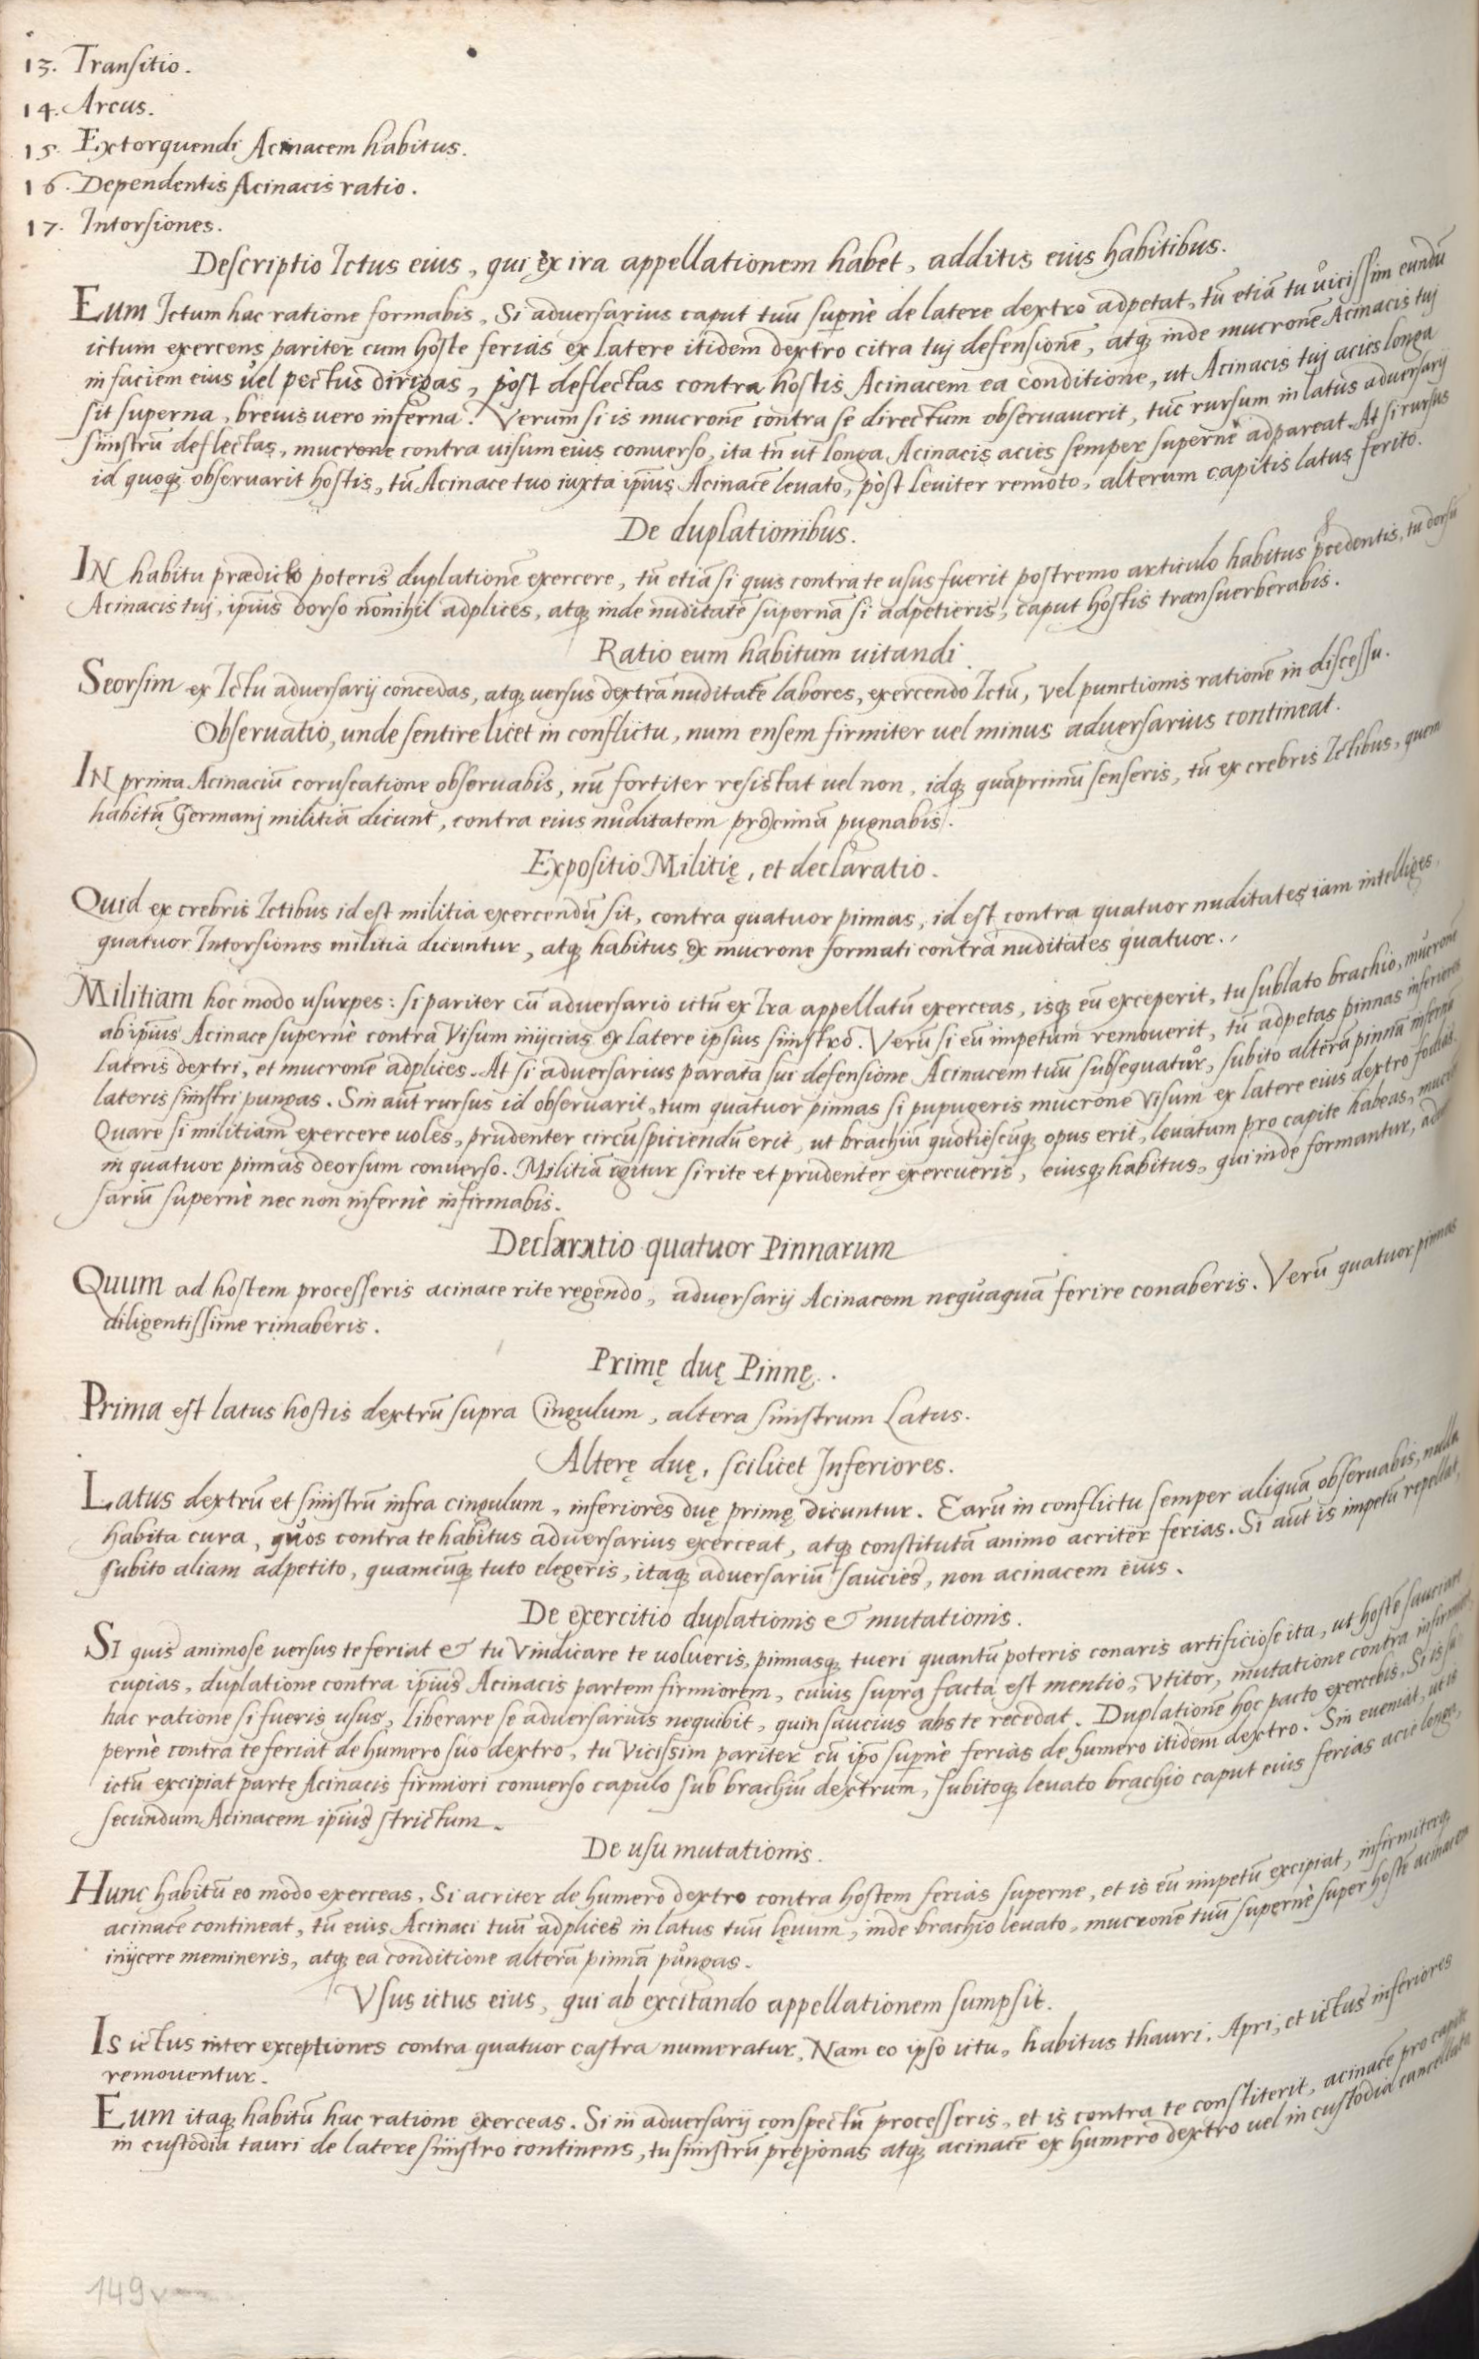 13. Transitio.
14. Arcus.
15. Extorquendi Acinacem habitus.
16. Dependentis Acinacis ratio.
17. Intorsiones.
Descriptio Ictus eius, qui ex ira appellationem habet, additis eius habitibus.
Eum Ictum hac ratione formabis. Si adversarius caput tuū supernè de latere dextro adpetat, tū etiā tu vicissim eundū
ictum exercens pariter cum hoste ferias ex latere itidem dextro citra tuj defensionē, atq; inde mucronē Acinacis tuj
in faciem eius vel pectus dirigas, pòst deflectas contra hostis Acinacem ea conditione, ut Acinacis tuj acies longa
sit superna, brevis vero inferna. Verum si is mucronē contra se directum observauerit, tūc rursum in latus adversarij
sinistrū deflectas, mucrone contra visum eius converso, ita tn̄ ut longa Acinacis acies semper supernè adpareat. At si rursus
id quoq; observarit hostis, tū Acinace tuo iuxta ip̄ius Acinacē levato, pòst leviter remoto, alterum capitis latus ferito.
De duplationibus.
IN habitu prædicto poteris duplationē exercere, tū etiā si quis contra te usus fuerit postremo articulo habitus p̄cedentis, tu dorsū
Acinacis tuj, ip̄ius dorso nōnihil adplices, atq; inde nuditatē supernā si adpetieris, caput hostis transuerberabis.
Ratio eum habitum uitandi.
Seorsim ex Ictu adversarij concedas, atq; uersus dextrā nuditatē labores, exercendo Ictū, vel punctionis rationē in discessu.
Observatio, unde sentire licet in conflictu, num ensem firmiter vel minus adversarius contineat.
IN prima Acinaciū coruscatione observabis, nū fortiter resistat vel non, idq; quāprimū senseris, tū ex crebris Ictibus, quem
habitū Germanj militiā dicunt, contra eius nuditatem proximā pugnabis.
Expositio Militię, et declaratio.
Quid ex crebris Ictibus id est militia exercendū sit, contra quatuor pinnas, id est contra quatuor nuditates iam intelliges,
quatuor Intorsiones militia dicuntur, atq; habitus ex mucrone formati contra nuditates quatuor.
Militiam hoc modo usurpes: si pariter cū adversario ictū ex Ira appellatū exerceas, isq; eū exceperit, tu sublato brachio, mucronē
ab ip̄ius Acinace supernè contra Visum inijcias ex latere ipsius sinistro. Verū si eū impetum removerit, tū adpetas pinnas inferiores
lateris dextri, et mucronē adplices. At si adversarius parata sui defensione Acinacem tuū subsequatur, subito alterā pinnā infernè
lateris sinistri pungas. Sin aūt rursus id observarit, tum quatuor pinnas si pupugeris mucronē Visum ex latere eius dextro fodias.
Quare si militiam exercere uoles, prudenter circūspiciendū erit, ut brachiū quotiescūq; opus erit, levatum pro capite habeas,
in quatuor pinnas deorsum converso. Militiā igitur si rite et prudenter exercueris, eiusq; habitus, qui inde formantur,
sariū supernè nec non infernè infirmabis.
Declaratio quatuor Pinnarum
Quum ad hostem processeris acinace rite regendo, adversarij Acinacem nequaquā ferire conaberis. Verū quatuor pinnas
diligentissime rimaberis.
Primę duę Pinnę.
Prima est latus hostis dextrū supra Cingulum, altera sinistrum Latus.
Alterę duę, scilicet Inferiores.
Latus dextrū et sinistrū infra cingulum, inferiores duę primę dicuntur. Earū in conflictu semper aliquā observabis, nulla
habita cura, quos contra te habitus adversarius exerceat, atq; constitutā animo acriter ferias. Si aūt is impetū repellat,
subito aliam adpetito, quamcūq; tuto elegeris, itaq; adversariū saucies, non acinacem eius.
De exercitio duplationis & mutationis.
SI quis animose versus te feriat & tu Vindicare te volueris, pinnasq; tueri quantū poteris conaris artificiose ita, ut hostē sauciare
cupias, duplatione contra ip̄ius Acinacis partem firmiorem, cuius supra facta est mentio, Vtitor, mutatione contra infirmiorē,
hac ratione si fueris usus, liberare se adversarius nequibit, quin saucius abs te recedat. Duplationē hoc pacto exercebis. Si is su-
pernè contra te feriat de humero suo dextro, tu Vicissim pariter cū ip̄o sup̄nè ferias de humero itidem dextro. Sin eveniat, ut is
ictū excipiat parte Acinacis firmiori converso capulo sub brachiū dextrum, subitoq; levato brachio caput eius ferias acie longa,
secundum Acinacem ip̄ius strictum.
De usu mutationis.
Hunc habitū eo modo exerceas. Si acriter de humero dextro contra hostem ferias superne, et is eū impetū excipiat, infirmiterq;
acinacē contineat, tū eius Acinaci tuū adplices in latus tuū lęvum, inde brachio levato, mucronē tuū supernè super hostē acinacem
inijcere memineris, atq; ea conditione alterā pinnā pungas.
Vsus ictus eius, qui ab excitando appellationem sumpsit.
Is ictus inter exceptiones contra quatuor castra numeratur. Nam eo ipso ictu, habitus thauri. Apri, et ictus inferiores
removentur.
Eum itaq; habitū hac ratione exerceas. Si in adversarij conspectū processeris, et is contra te constiterit, acinacē pro capite
in custodia tauri de latere sinistro continens, tu sinistrū pręponas atq; acinacē ex humero dextro vel in custodia cancellata
149v